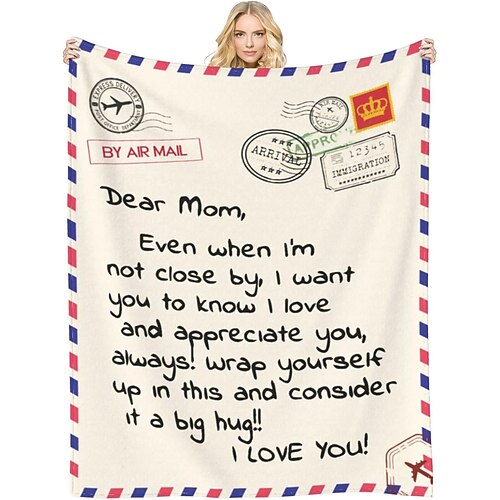 EXPRESS DELIVERY
BY AIR MAIL
AIR MAIL
ARRIVAL
12345
IMMIGRATION
Dear Mom,
Even when I'm
not close by, I want
you to know I love
and appreciate you,
always! Wrap yourself
up in this and consider
it a big hug!!
I LOVE YOU!